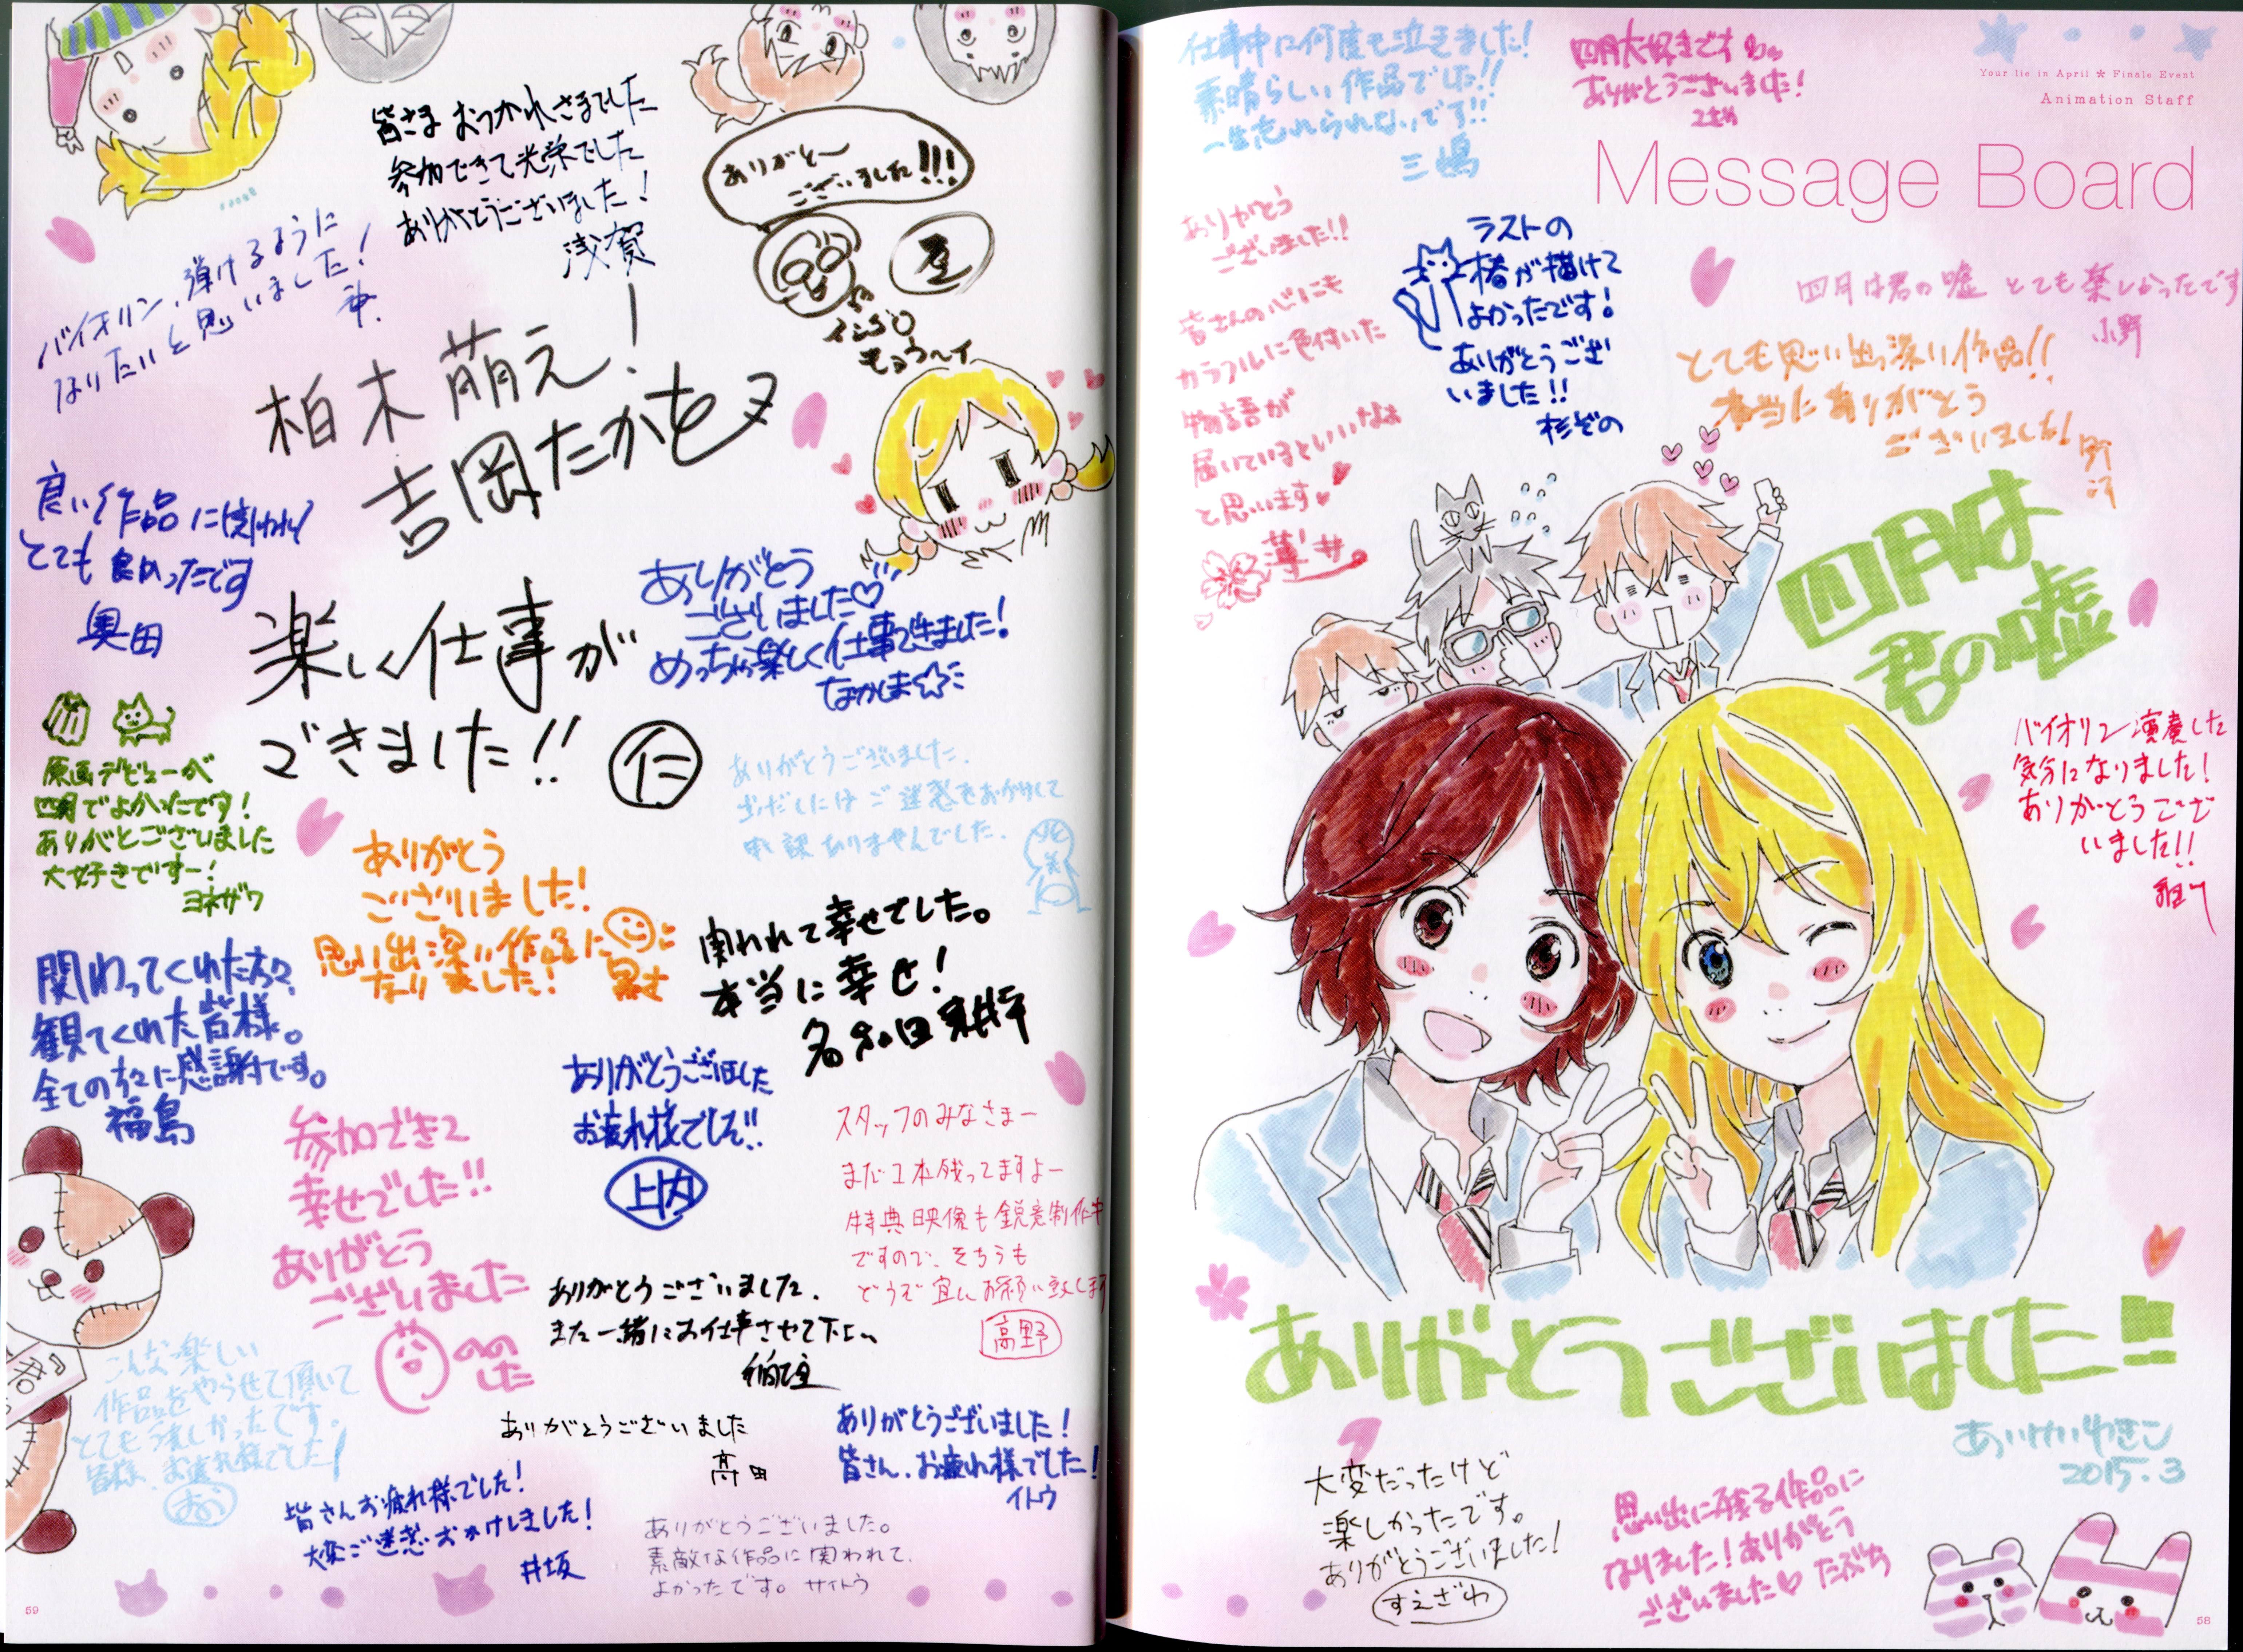 Your lie in April * Finale Event
Animation Staff
Message Board
仕事中に何度も泣きました!
素晴らしい作品でした!!
一生忘れられないです!!
三嶋
四月大好きです
ありがとうございました!
ありがとう
ございました!!
皆さんの心にも
カラフルに色付いた
物語が
届いているといいなぁ
と思います
薄井。
ラストの
椿が描けて
よかったです!
ありがとうござ
いました!!
杉ぞの
四月は君の嘘 とても楽しかったです
小野
とても思い出深い作品!!
本当にありがとう
ございました!
四月は
君の嘘
バイオリン演奏した
気分になりました!
ありがとうござ
いました!!
ありがとうございました!!
あいけいゆきこ
2015.3
大変だったけど
楽しかったです。
ありがとうございました!
すえざわ
思い出に残る作品に
なりました!ありがとう
ございました♡ たぶち
58
皆さま おつかれさまでした
参加できて光栄でした
ありがとうございました!
浅賀
ありがとー
ございました!!!
バイオリン、弾けるように
なりたいと思いました!
神.
柏木萌え!
吉岡たかを
良い作品に関われ
とても良かったです
奥田
楽しい仕事が
できました!!
仁
ありがとう
ございました♡
めっちゃ楽しく仕事できました!
なかしま☆
原画デビューが
四月でよかったです!
ありがとございました
大好きですー!
ヨネザワ
ありがとうございました.
ご迷惑をおかけして
申し訳ありませんでした.
ありがとう
ございました!
思い出深い作品に
なりました!
関われて幸せでした。
本当に幸せ!
関わってくれた方々、
観てくれた皆様。
全ての方々に感謝です。
福島
ありがとうございました
お疲れ様でした!!
参加できて
幸せでした!!
ありがとう
ございました
スタッフのみなさまー
まだ1本残ってますよー
特典映像も鋭意制作中
ですので、そちらも
どうぞ宜しくお願い致します
高野
ありがとうございました.
また一緒にお仕事させて下さい
こんな楽しい
作品をやらせて頂いて
とてもうれしかったです。
皆様、お疲れ様でした!
ありがとうございました
高田
ありがとうございました!
皆さん、お疲れ様でした!
イトウ
皆さんお疲れ様でした!
大変ご迷惑おかけしました!
井坂
ありがとうございました。
素敵な作品に関われて、
よかったです。 サイトウ
59